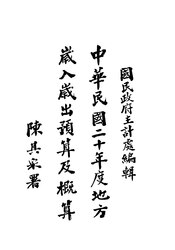 國民政府主計處編輯
中華民國二十年度地方
歲入歲出預算及概算
陳其采署